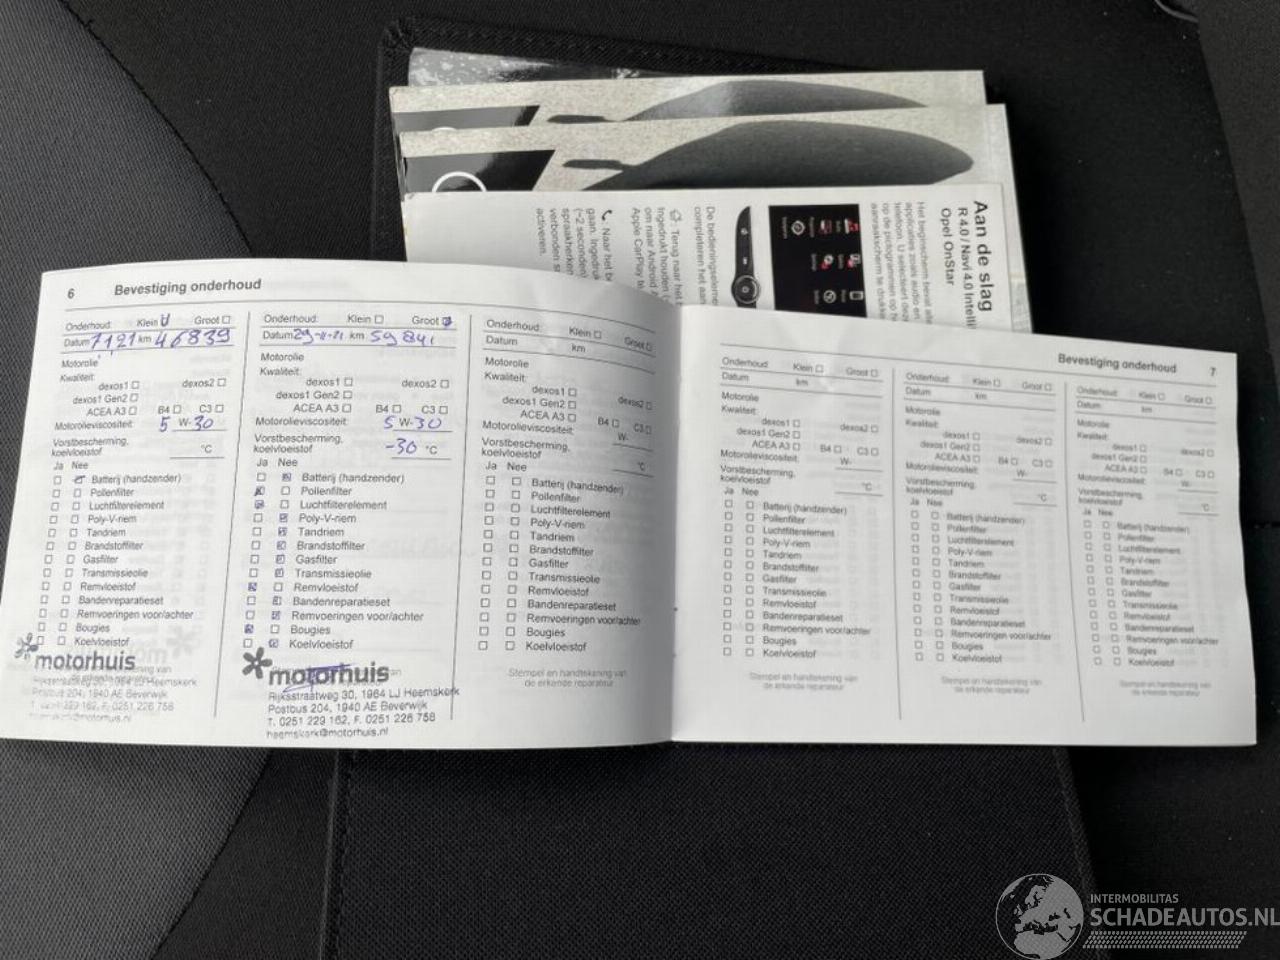 Aan de slag
R 4.0 / Navi 4.0 Intelli
Opel OnStar
Het beginscherm bevat alle
applicaties zoals audio en
telefoon. U selecteert deze
op de pictogrammen op he
aanraakscherm te drukke
De bedieningseleme
completeren het aan
Terug naar het b
Ingedrukt houden (
om naar Android A
Apple CarPlay te
Naar het be
gaan. Ingedruk
(~2 seconden)
spraakherken
verbonden s
activeren.
6 Bevestiging onderhoud
Onderhoud: Klein Groot
Datum 7121 km 46839
Motorolie
Kwaliteit:
dexos1 dexos2
dexos1 Gen2
ACEA A3 B4 C3
Motorolieviscositeit: 5 W-30
Vorstbescherming,
koelvloeistof °C
Ja Nee
Batterij (handzender)
Pollenfilter
Luchtfilterelement
Poly-V-riem
Tandriem
Brandstoffilter
Gasfilter
Transmissieolie
Remvloeistof
Bandenreparatieset
Remvoeringen voor/achter
Bougies
Koelvloeistof
motorhuis
Rijksstraatweg 30, 1964 LJ Heemskerk
Postbus 204, 1940 AE Beverwijk
T. 0251 229 162, F. 0251 226 758
heemskerk@motorhuis.nl
Onderhoud: Klein Groot
Datum 29-11-21 km 59841
Motorolie
Kwaliteit:
dexos1 dexos2
dexos1 Gen2
ACEA A3 B4 C3
Motorolieviscositeit: 5 W-30
Vorstbescherming,
koelvloeistof -30 °C
Ja Nee
Batterij (handzender)
Pollenfilter
Luchtfilterelement
Poly-V-riem
Tandriem
Brandstoffilter
Gasfilter
Transmissieolie
Remvloeistof
Bandenreparatieset
Remvoeringen voor/achter
Bougies
Koelvloeistof
motorhuis
Rijksstraatweg 30, 1964 LJ Heemskerk
Postbus 204, 1940 AE Beverwijk
T. 0251 229 162, F. 0251 226 758
heemskerk@motorhuis.nl
Onderhoud: Klein Groot
Datum km
Motorolie
Kwaliteit:
dexos1 dexos2
dexos1 Gen2
ACEA A3 B4 C3
Motorolieviscositeit: W-
Vorstbescherming,
koelvloeistof °C
Ja Nee
Batterij (handzender)
Pollenfilter
Luchtfilterelement
Poly-V-riem
Tandriem
Brandstoffilter
Gasfilter
Transmissieolie
Remvloeistof
Bandenreparatieset
Remvoeringen voor/achter
Bougies
Koelvloeistof
Stempel en handtekening van
de erkende reparateur
Bevestiging onderhoud 7
Onderhoud: Klein Groot
Datum km
Motorolie
Kwaliteit:
dexos1 dexos2
dexos1 Gen2
ACEA A3 B4 C3
Motorolieviscositeit: W-
Vorstbescherming,
koelvloeistof °C
Ja Nee
Batterij (handzender)
Pollenfilter
Luchtfilterelement
Poly-V-riem
Tandriem
Brandstoffilter
Gasfilter
Transmissieolie
Remvloeistof
Bandenreparatieset
Remvoeringen voor/achter
Bougies
Koelvloeistof
Stempel en handtekening van
de erkende reparateur
Onderhoud: Klein Groot
Datum km
Motorolie
Kwaliteit:
dexos1 dexos2
dexos1 Gen2
ACEA A3 B4 C3
Motorolieviscositeit: W-
Vorstbescherming,
koelvloeistof °C
Ja Nee
Batterij (handzender)
Pollenfilter
Luchtfilterelement
Poly-V-riem
Tandriem
Brandstoffilter
Gasfilter
Transmissieolie
Remvloeistof
Bandenreparatieset
Remvoeringen voor/achter
Bougies
Koelvloeistof
Stempel en handtekening van
de erkende reparateur
Onderhoud: Klein Groot
Datum km
Motorolie
Kwaliteit:
dexos1 dexos2
dexos1 Gen2
ACEA A3 B4 C3
Motorolieviscositeit: W-
Vorstbescherming,
koelvloeistof °C
Ja Nee
Batterij (handzender)
Pollenfilter
Luchtfilterelement
Poly-V-riem
Tandriem
Brandstoffilter
Gasfilter
Transmissieolie
Remvloeistof
Bandenreparatieset
Remvoeringen voor/achter
Bougies
Koelvloeistof
Stempel en handtekening van
de erkende reparateur
INTERMOBILITAS
SCHADEAUTOS.NL